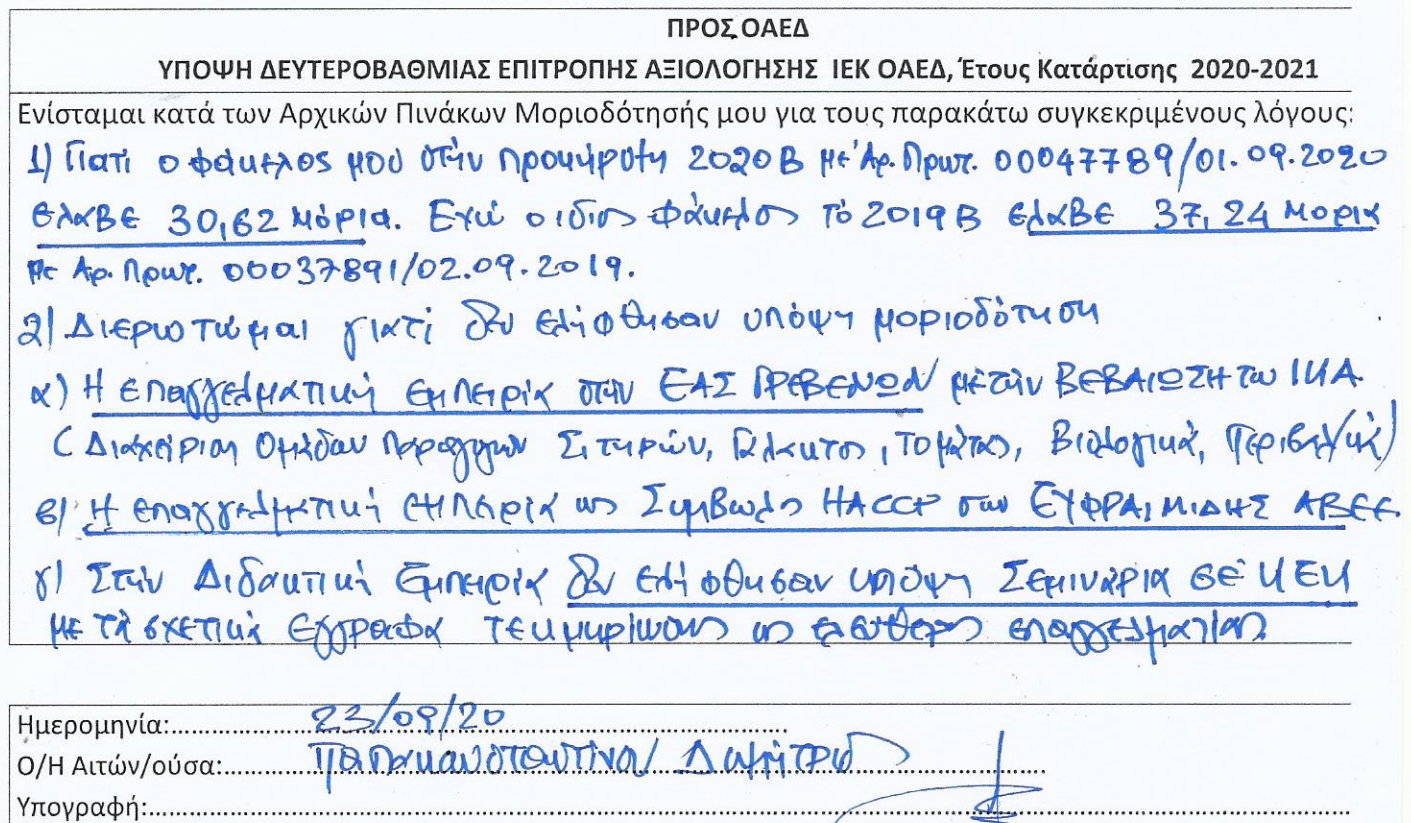 ΠΡΟΣ ΟΑΕΔ
ΥΠΟΨΗ ΔΕΥΤΕΡΟΒΑΘΜΙΑΣ ΕΠΙΤΡΟΠΗΣ ΑΞΙΟΛΟΓΗΣΗΣ ΙΕΚ ΟΑΕΔ, Έτους Κατάρτισης 2020-2021
Ενίσταμαι κατά των Αρχικών Πινάκων Μοριοδότησής μου για τους παρακάτω συγκεκριμένους λόγους:
1) Γιατί ο φάκελος μου στην προκήρυξη 2020Β με Αρ. Πρωτ. 00047789/01.09.2020
έλαβε 30,62 μόρια. Ενώ ο ίδιος φάκελος το 2019Β έλαβε 37,24 μόρια
με Αρ. Πρωτ. 00037891/02.09.2019.
2) Διερωτώμαι γιατί δεν ελήφθησαν υπόψη μοριοδότηση
α) Η επαγγελματική εμπειρία στην ΕΑΣ ΓΡΕΒΕΝΩΝ με την ΒΕΒΑΙΩΣΗ του ΙΚΑ
(Διαχείριση Ομάδων Παραγωγών Σιτηρών, Γάλακτος, Τομάτας, Βιολογικά, Περιβαλ/κά)
β) Η επαγγελματική εμπειρία ως Σύμβουλο HACCP στον ΕΥΦΡΑΙΜΙΔΗΣ ΑΒΕΕ.
γ) Στην Διδακτική Εμπειρία δεν ελήφθησαν υπόψη Σεμινάρια σε ΚΕΚ
με τα σχετικά έγγραφα τεκμηρίωσης ως ελεύθερος επαγγελματίας
Ημερομηνία: 23/09/20
Ο/Η Αιτών/ούσα: Παπακωνσταντίνου Δημήτριος
Υπογραφή: